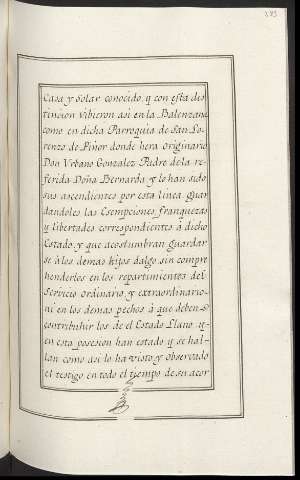 Casa y Solar conocido, q con esta dis
tincion vibieron asi en la Balenzana
como en dicha Parroquia de San Lo-
renzo de Piñor donde hera originario
Don Vrbano Gonzalez Padre de la re-
ferida Doña Bernarda y lo han sido
sus ascendientes por esta linea guar
dandoles las Esempciones, franquezas
y libertades correspondientes á dicho
Estado, y que acostumbran guardar
se á los demas hijos dalgo, sin compre
henderlos en los repartimientos del
Servicio ordinario, y extraordinario
ni en los demas pechos á que deben
contribuhir los de el Estado Llano, y
en esta posesion han estado y se hal-
lan como asi lo ha visto y observado
el testigo en todo el tiempo de su acor